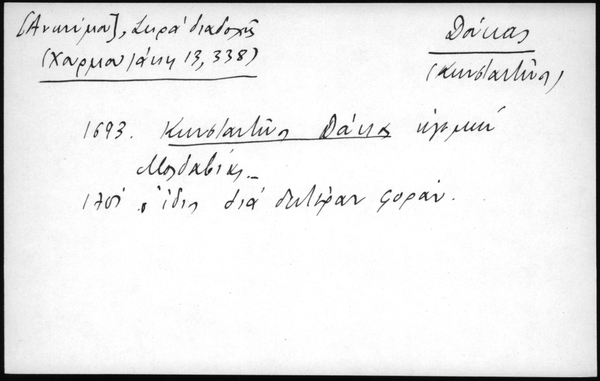 [Ἀνωνύμου], Σειρά διαδοχῆς
(Χουρμουζάκη 13, 338)
Δούκας
(Κωνσταντῖνος)
1693. Κωνσταντῖνος Δούκας ἡγεμών
Μολδαβίας._
ὁ ἴδιος διά δευτέραν φοράν.